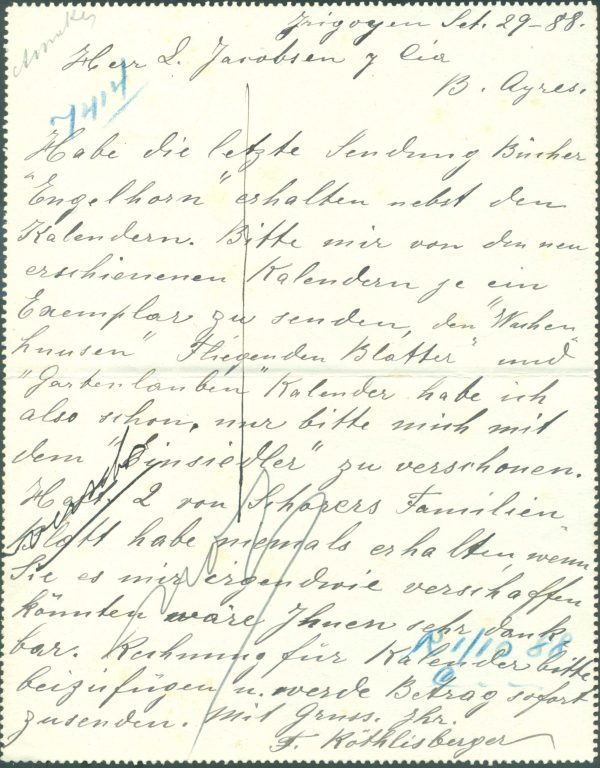 Irigoyen Set. 29-88.
Herr L. Jacobsen y Cia
B. Ayres.
7414
Habe die letzte Sendung Bücher
"Engelhorn" erhalten nebst den
Kalendern. Bitte mir von den neu
erschienenen Kalendern je ein
Exemplar zu senden, den "Wachen
husen" Fliegenden Blätter" und
"Gartenlauben" Kalender habe ich
also schon, nur bitte mich mit
dem "Einsiedler" zu verschonen.
Heft 2 von Schorers Familien
Blatt habe niemals erhalten, wenn
Sie es mir irgendwie verschaffen
könnten wäre Ihnen sehr dank
bar. Rechnung für Kalender bitte
beizufügen u. werde Betrag sofort
zusenden. Mit Gruss. Ihr.
F. Röthlisberger
R 1/10 88